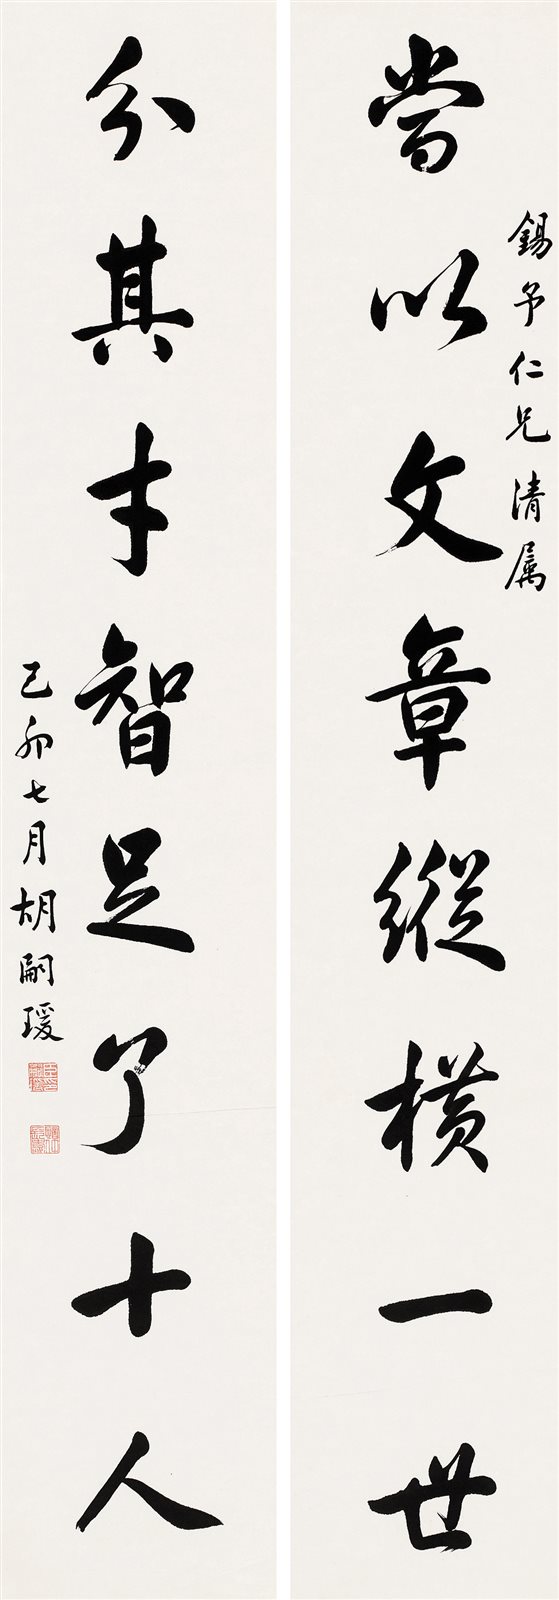 錫予仁兄清属
當以文章縱橫一世
分其才智足了十人
己卯七月胡嗣瑗